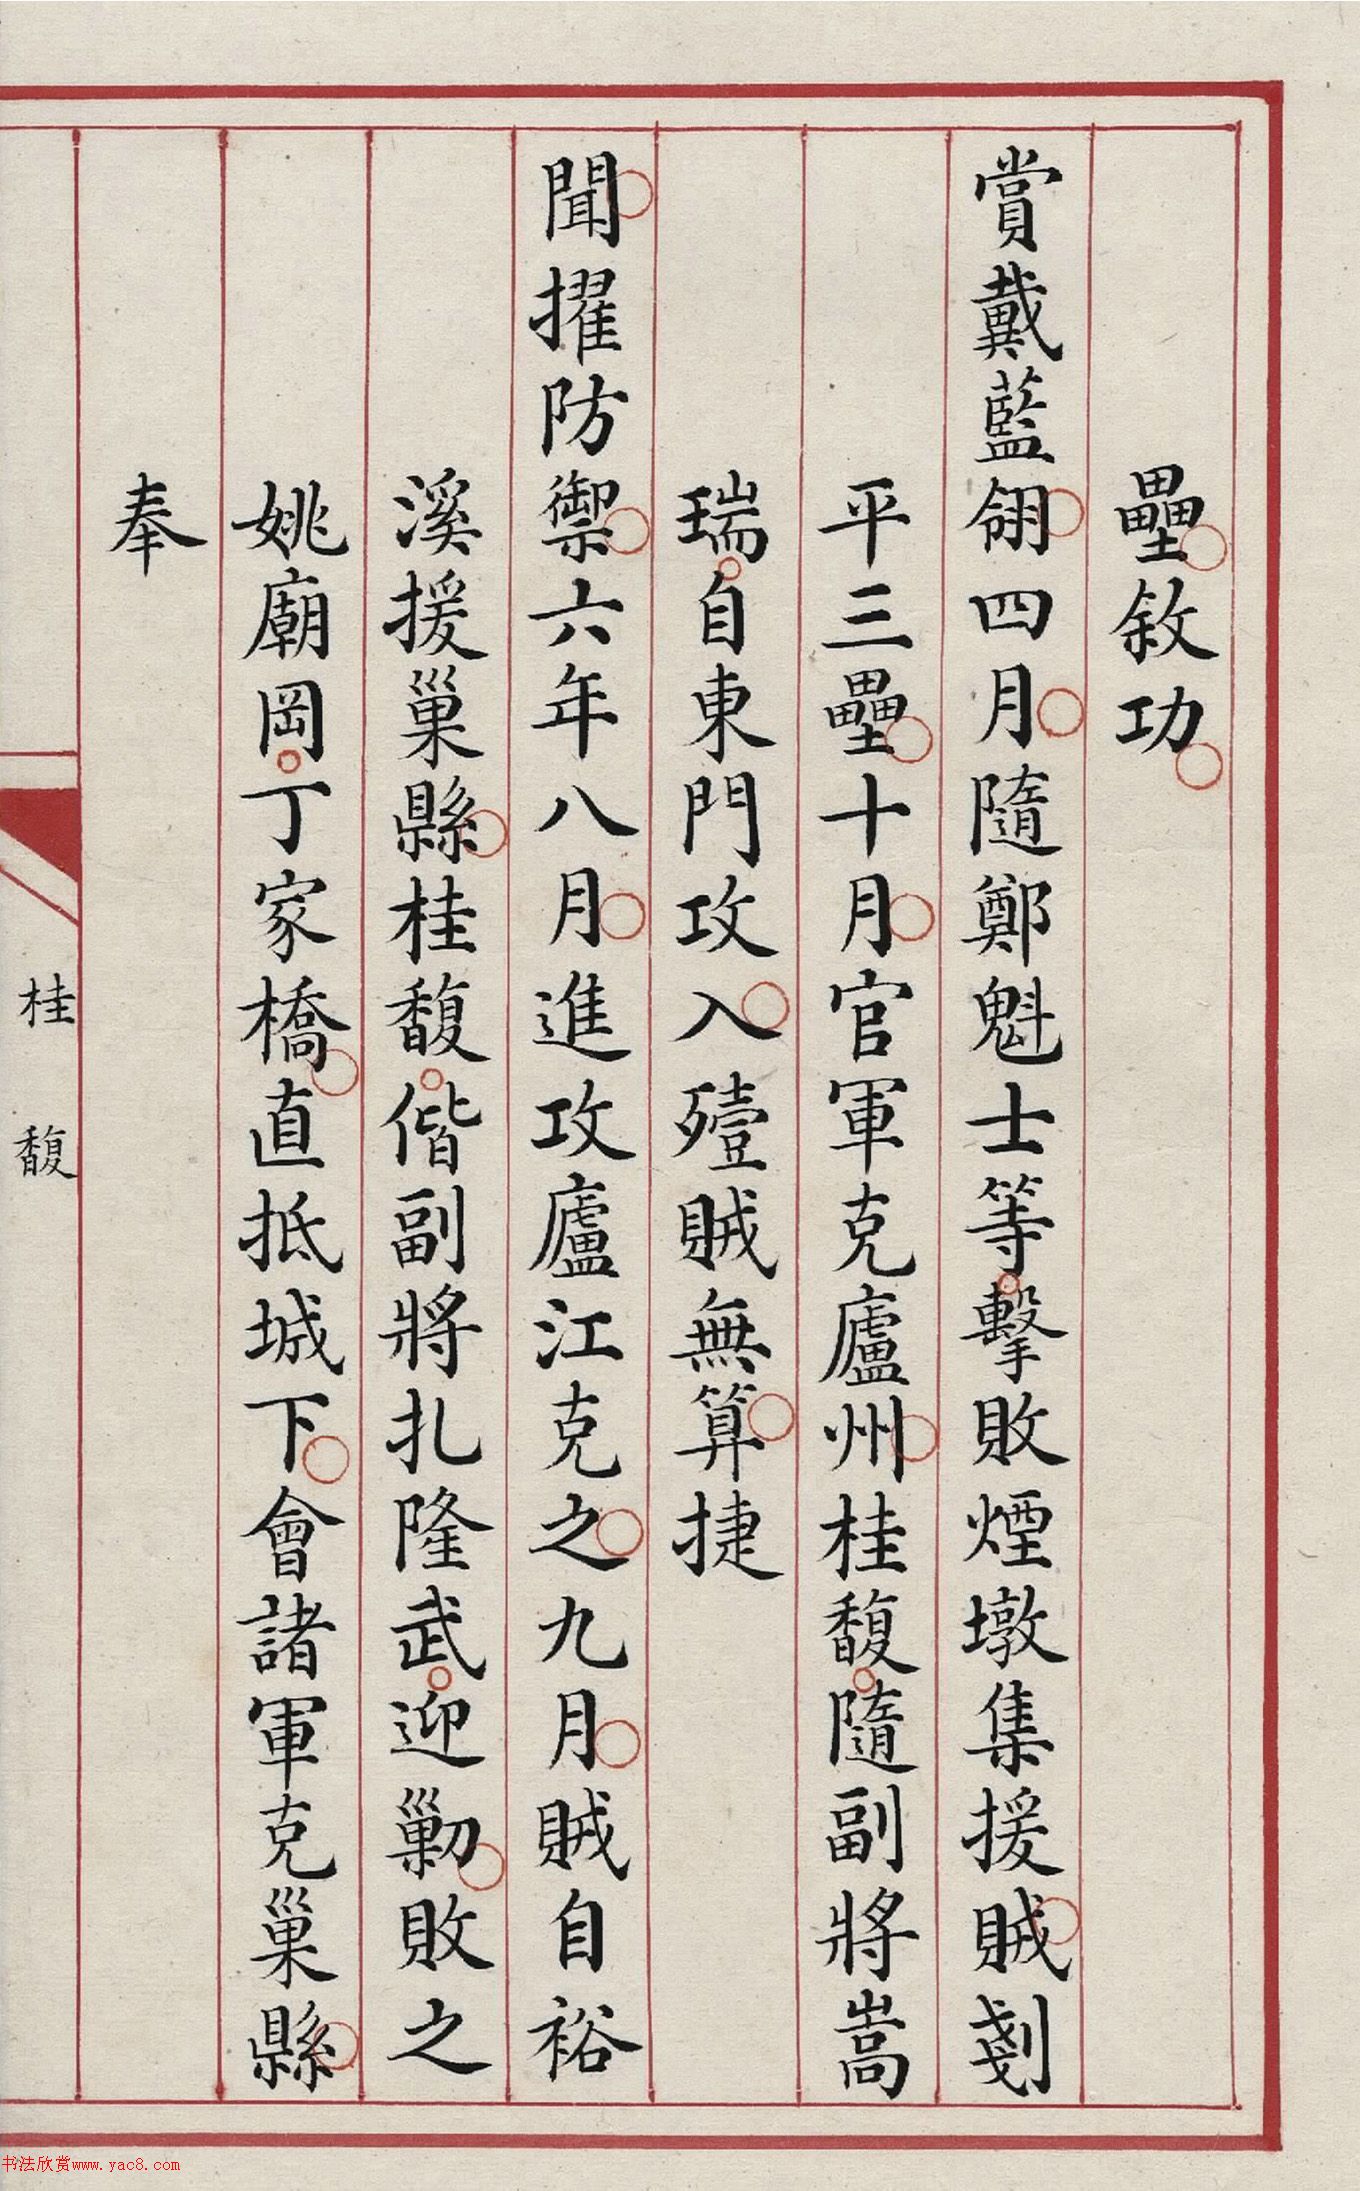 壘敘功
賞戴藍翎四月隨鄭魁士等擊敗煙墩集援賊剗
平三壘十月官軍克廬州桂馥隨副將嵩
瑞自東門攻入殪賊無算捷
聞擢防禦六年八月進攻廬江克之九月賊自裕
溪援巢縣桂馥偕副將扎隆武迎勦敗之
姚廟岡丁家橋直抵城下會諸軍克巢縣
奉
桂馥
书法欣赏www.yac8.com